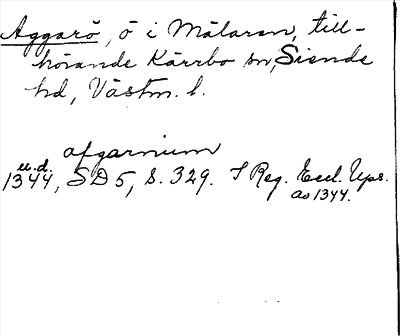 Aggarö, ö i Mälaren, till-
hörande Kärrbo sn, Siende
hd, Västm. l.
afgarnium
u.d.
1344, SD 5, s. 329. I Reg. Eccl. Ups.
ao 1344.